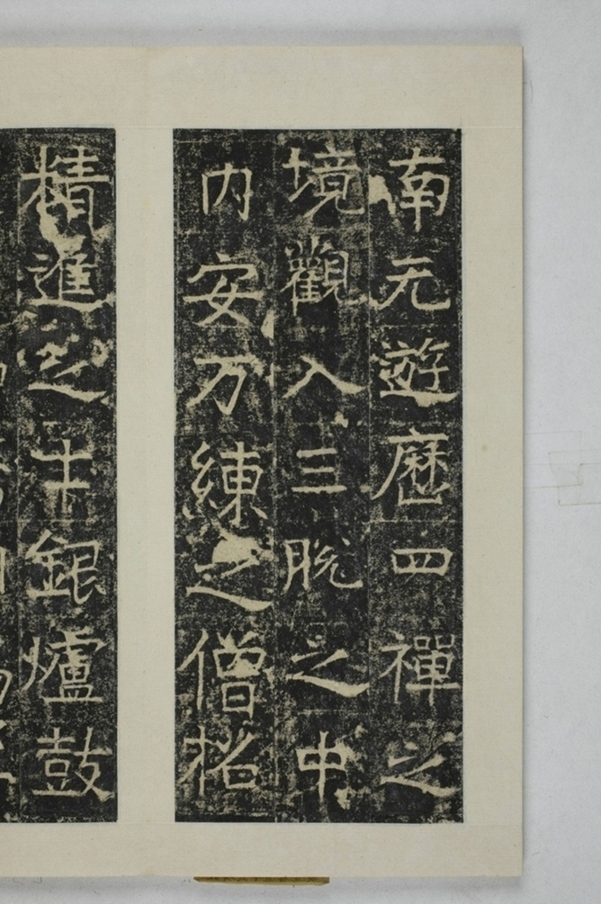 南无遊歷四禪之
境觀入三脫之中
内安万練之僧格
精進之牛銀爐鼓